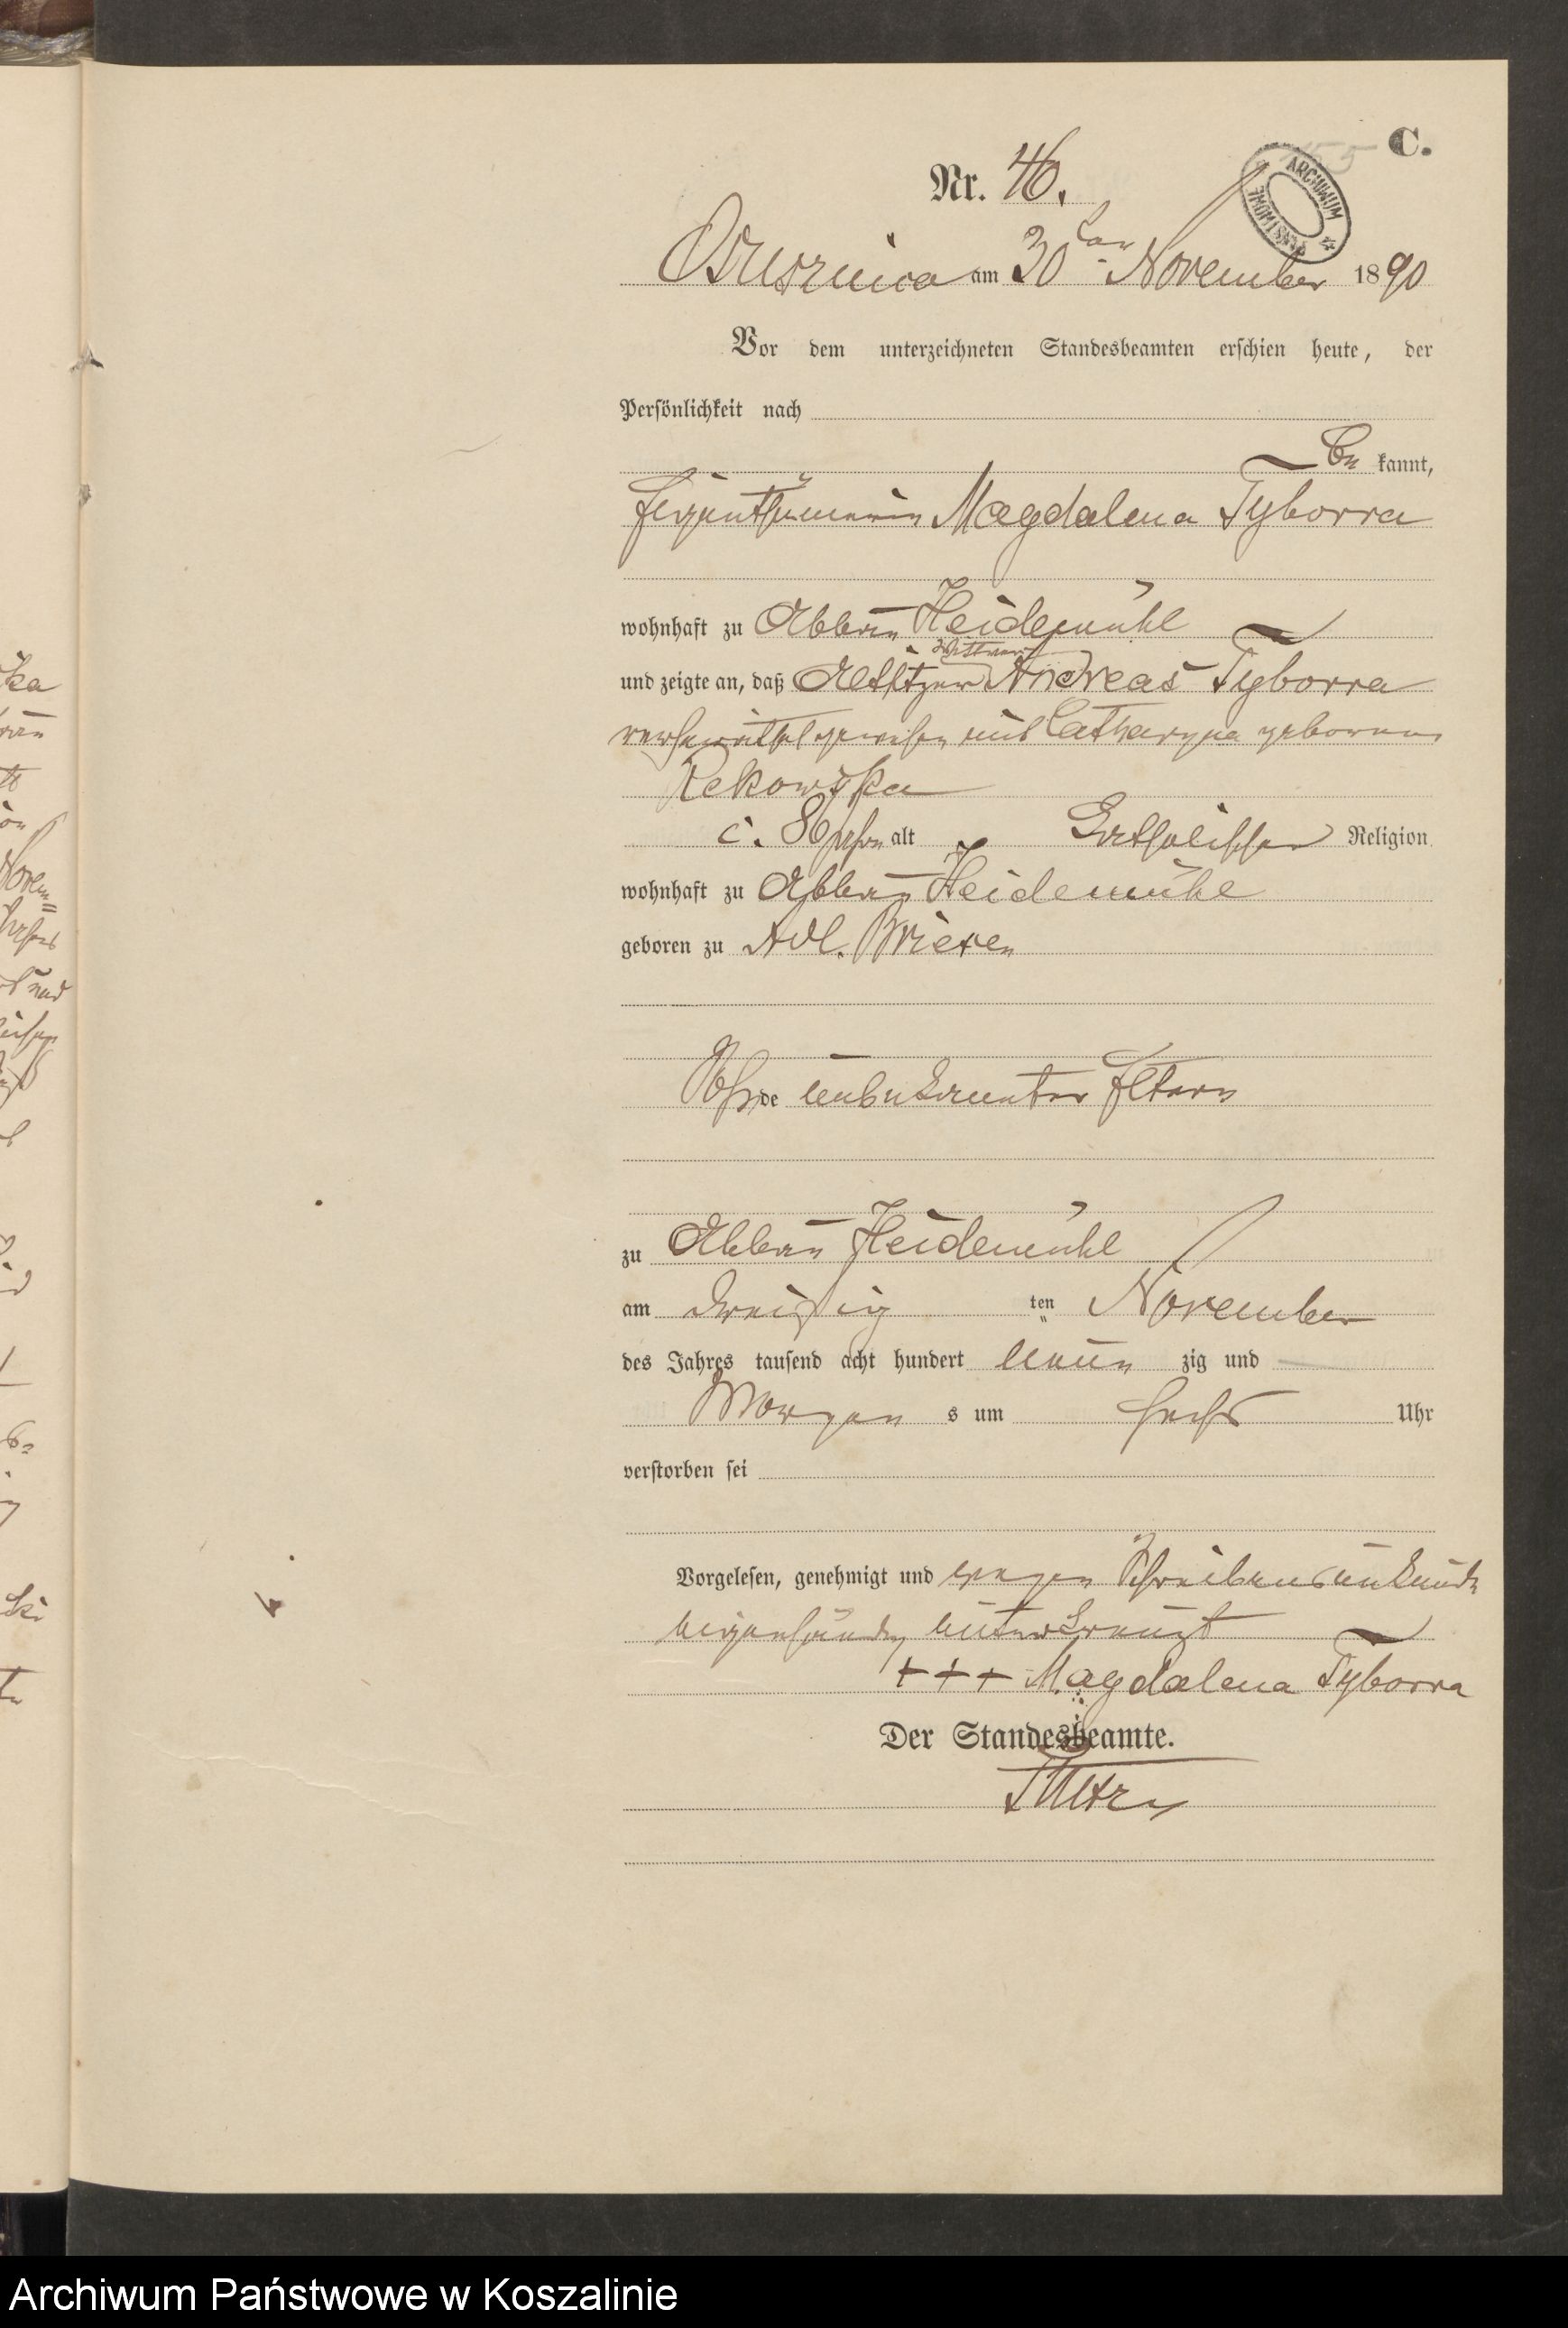 C.
155
ARCHIWUM PAŃSTWOWE
Nr. 46.
am 30ten November 1890
Vor dem unterzeichneten Standesbeamten erschien heute, der
Persönlichkeit nach
be kannt,
Eigenthümerin Magdalena Tyborra
wohnhaft zu Abbau Heidemühl
Wittwer
und zeigte an, daß Altsitzer Andreas Tyborra
verheirathet gewesen mit Catharyna geborene
Rekowska
c. 86 Jahre alt Katholischer Religion
wohnhaft zu Abbau Heidemühl
geboren zu Adl. Briesen
Sohn de unbekannter Eltern
zu Abbau Heidemühl
am dreißig ten November
des Jahres tausend acht hundert neun zig und
Morgen s um sechs Uhr
verstorben sei
Vorgelesen, genehmigt und wegen Schreibensunkunde
eigenhändig unterkreuzt
+ + + Magdalena Tyborra
Der Standesbeamte.
Archiwum Państwowe w Koszalinie